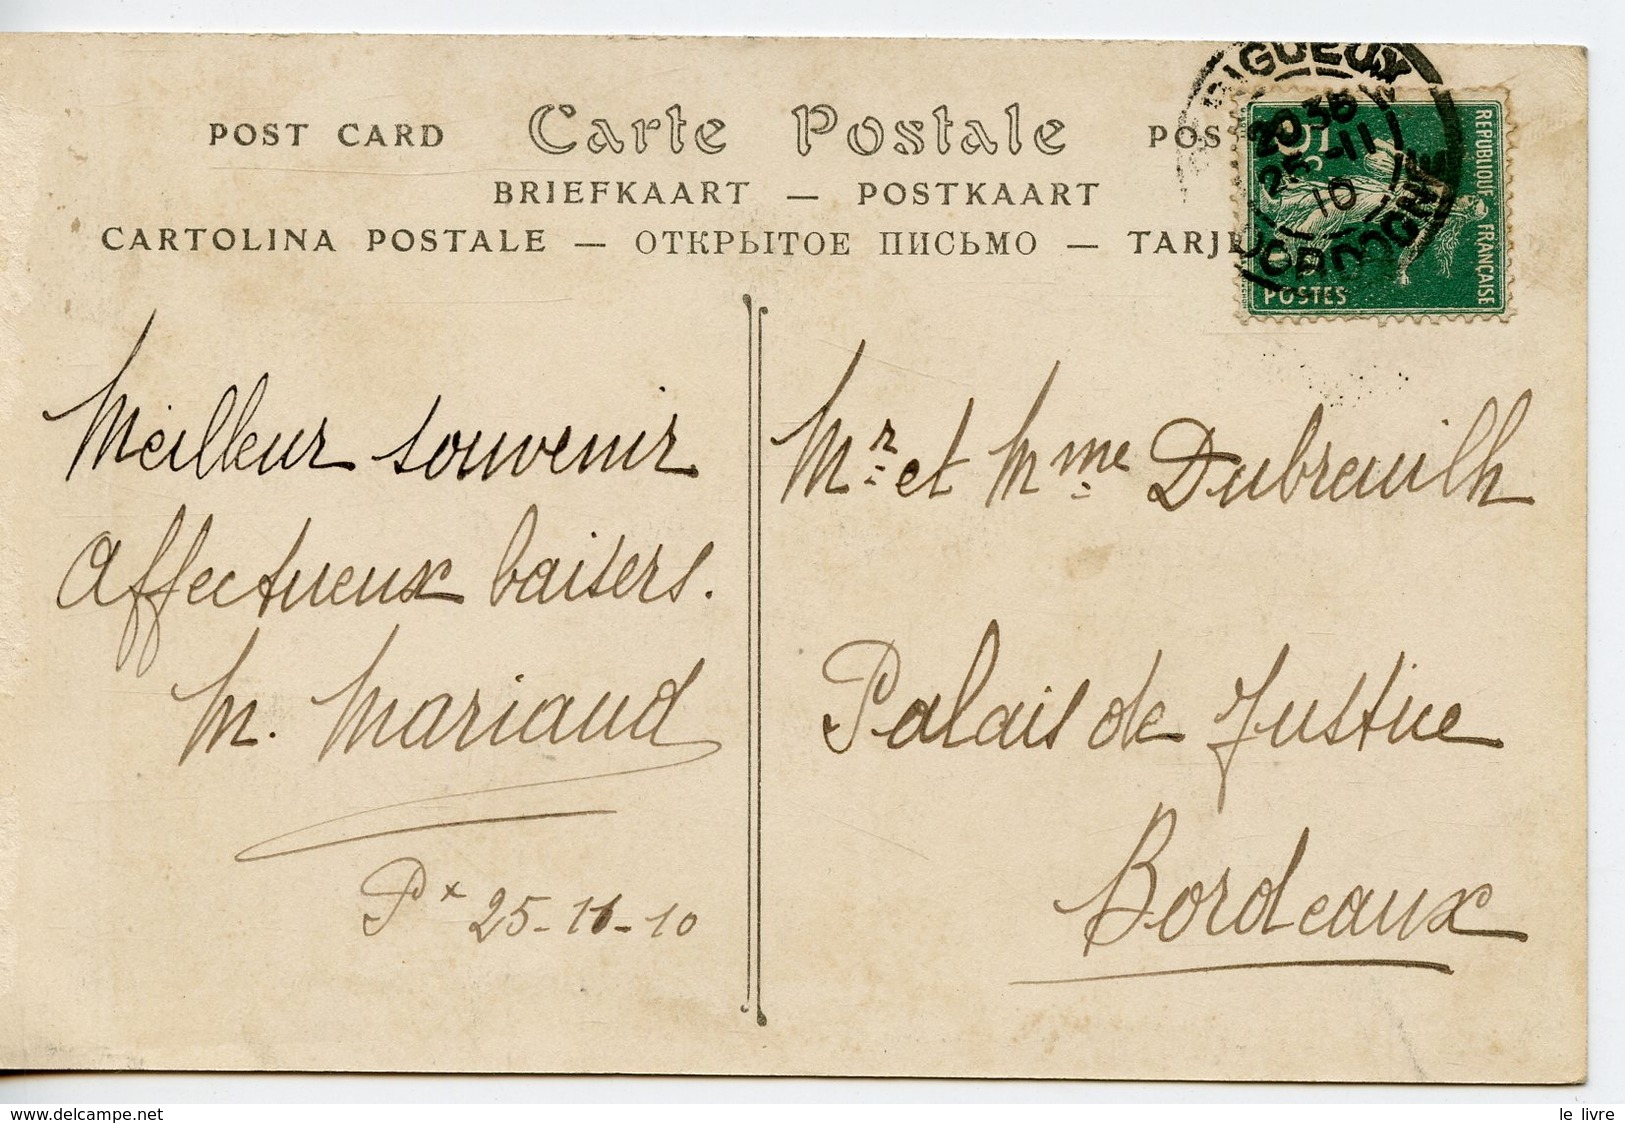 POST CARD Carte Postale POS
BRIEFKAART — POSTKAART
CARTOLINA POSTALE — ОТКРЫТОЕ ПИСЬМО — TARJ
REPUBLIQUE FRANÇAISE
POSTES
20 35
25-11
10
DORDOGNE
Meilleur souvenir
Affectueux baisers.
M. Mariaud
Px 25-11-10
Mr. et Mme Dubreuilh
Palais de Justice
Bordeaux
www.delcampe.net
le livre